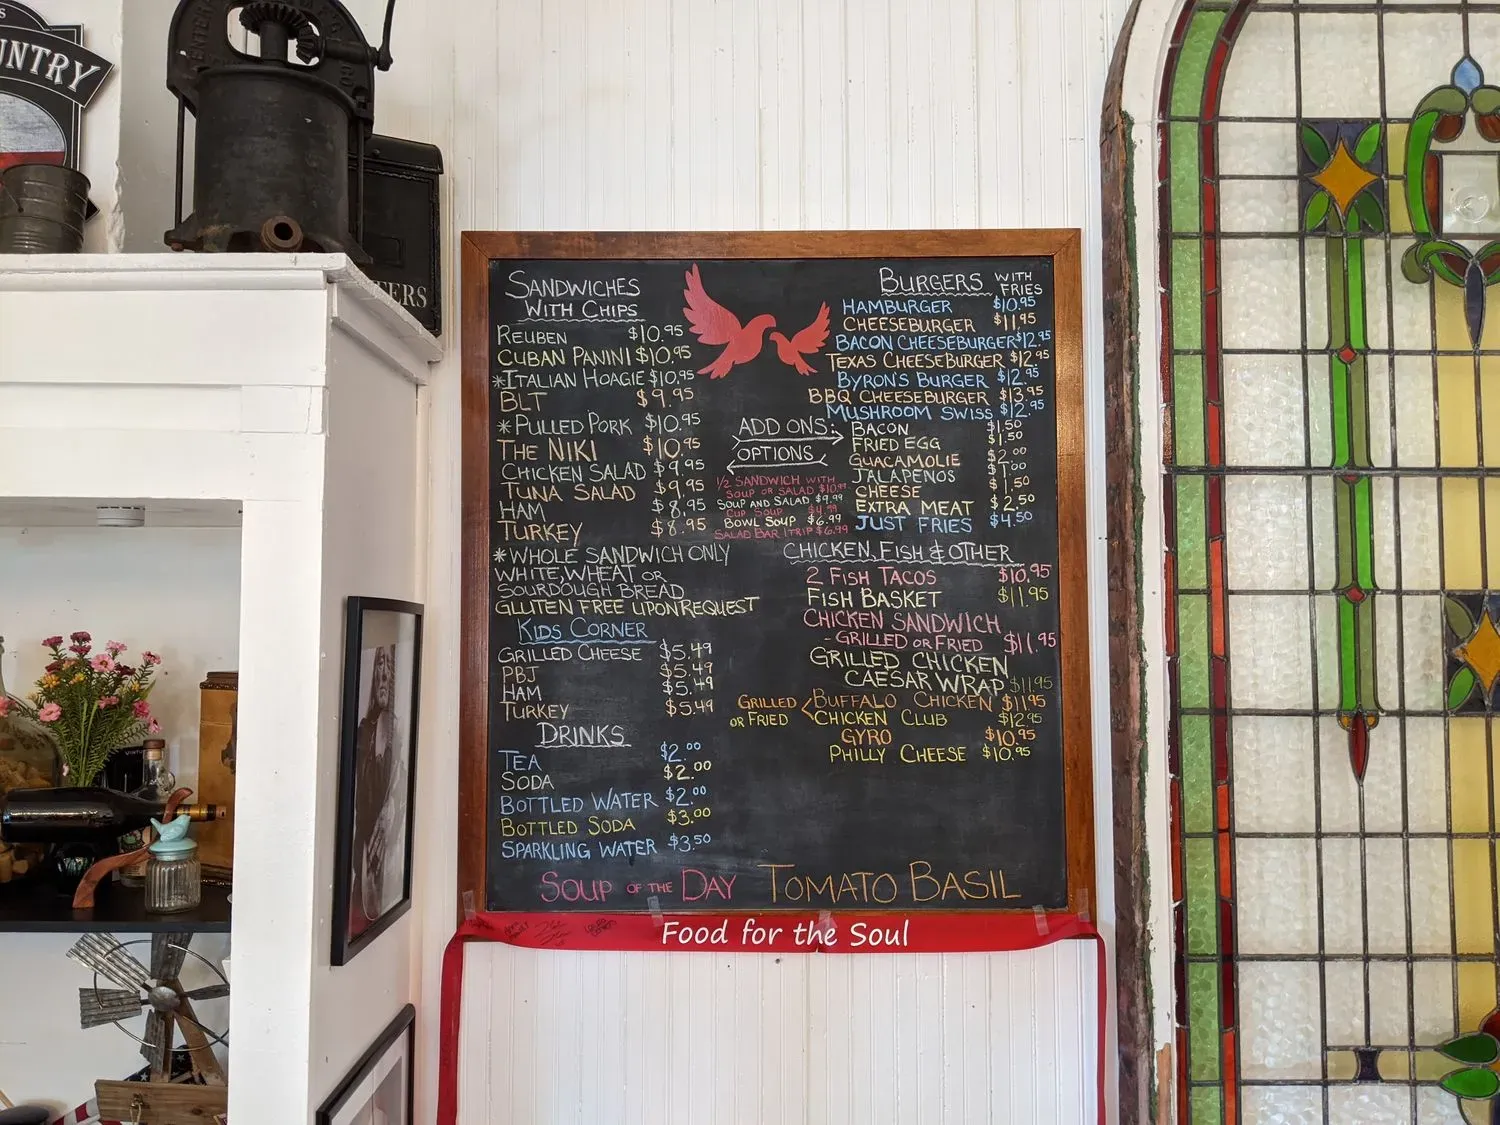 UNTRY
TERS
SANDWICHES
WITH CHIPS
REUBEN $10.95
CUBAN PANINI $10.95
*ITALIAN HOAGIE $10.95
BLT $9.95
*PULLED PORK $10.95
THE NIKI $10.95
CHICKEN SALAD $9.95
TUNA SALAD $9.95
HAM $8.95
TURKEY $8.95
*WHOLE SANDWICH ONLY
WHITE, WHEAT OR
SOURDOUGH BREAD
GLUTEN FREE UPON REQUEST
KIDS CORNER
GRILLED CHEESE $5.49
PBJ $5.49
HAM $5.49
TURKEY $5.49
DRINKS
TEA $2.00
SODA $2.00
BOTTLED WATER $2.00
BOTTLED SODA $3.00
SPARKLING WATER $3.50
BURGERS WITH FRIES
HAMBURGER $10.95
CHEESEBURGER $11.95
BACON CHEESEBURGER $12.95
TEXAS CHEESEBURGER $12.95
BYRON'S BURGER $12.95
BBQ CHEESEBURGER $13.95
MUSHROOM SWISS $12.95
ADD ONS:
BACON $1.50
FRIED EGG $1.50
GUACAMOLIE $2.00
JALAPENOS $1.00
CHEESE $1.50
EXTRA MEAT $2.50
JUST FRIES $4.50
OPTIONS
1/2 SANDWICH WITH
SOUP OR SALAD $10.99
SOUP AND SALAD $9.99
CUP SOUP $4.99
BOWL SOUP $6.99
SALAD BAR 1 TRIP $6.99
CHICKEN, FISH & OTHER
2 FISH TACOS $10.95
FISH BASKET $11.95
CHICKEN SANDWICH
- GRILLED OR FRIED $11.95
GRILLED CHICKEN
CAESAR WRAP $11.95
GRILLED OR FRIED < BUFFALO CHICKEN $11.95
CHICKEN CLUB $12.95
GYRO $10.95
PHILLY CHEESE $10.95
SOUP OF THE DAY TOMATO BASIL
Food for the Soul